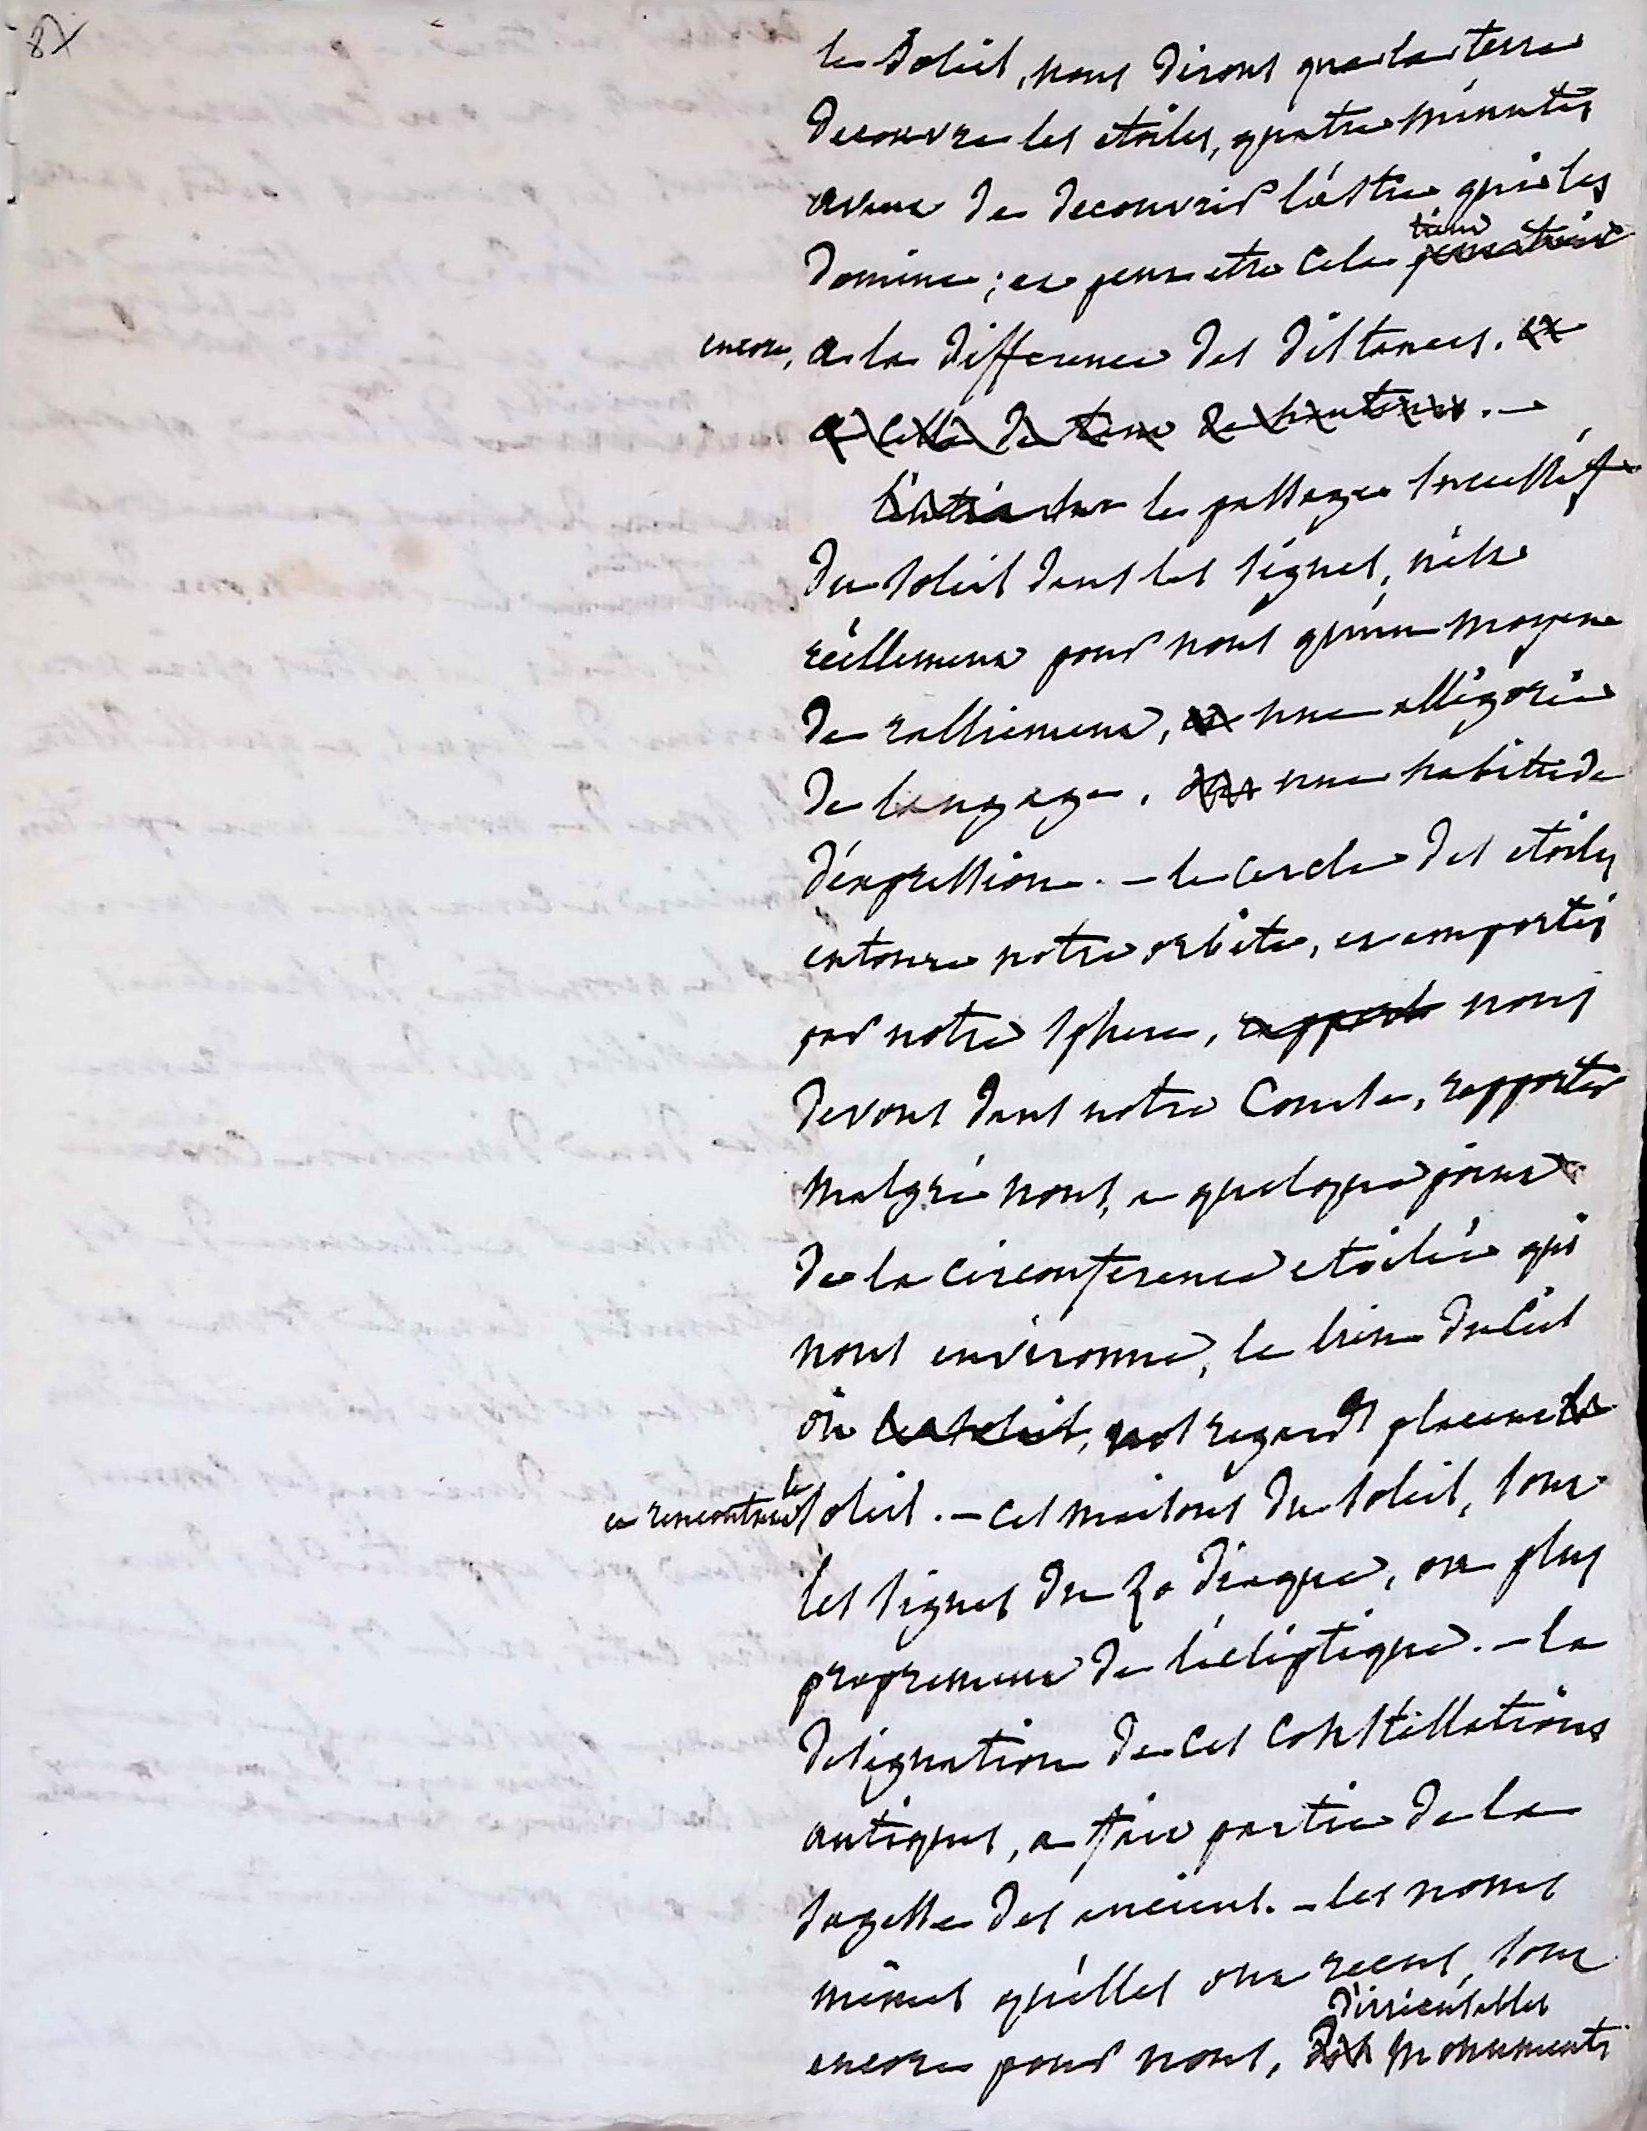 87
le soleil, nous disons que la terre
decouvre les etoiles, quatre minutes
avant de decouvrir l'astre qui les
tient
domine ; et peut etre cela
encore, a la difference des distances. et
a celle de
le passage successif
du soleil dans les signes, n'est
réellement pour nous qu'un moyen
de ralliement, et une allégorie
de langage, une habitude
d'expression. – le cercle des etoiles
entoure notre orbite, et emportés
par notre sphere, rapporte nous
devons dans notre course, rapporter
malgré nous, a quelque point
de la circonference etoilée qui
nous environne, le lieu du ciel
où le soleil, nos regards placent le
et rencontrent le soleil. – ces maisons du soleil, sont
les signes du zodiaque, ou plus
proprement de l'écliptique. – la
designation de ces constéllations
antiques, a fait partie de la
sagesse des anciens. – les noms
mêmes qu'elles ont recus, sont
d'irrécusables
encore pour nous, des monuments